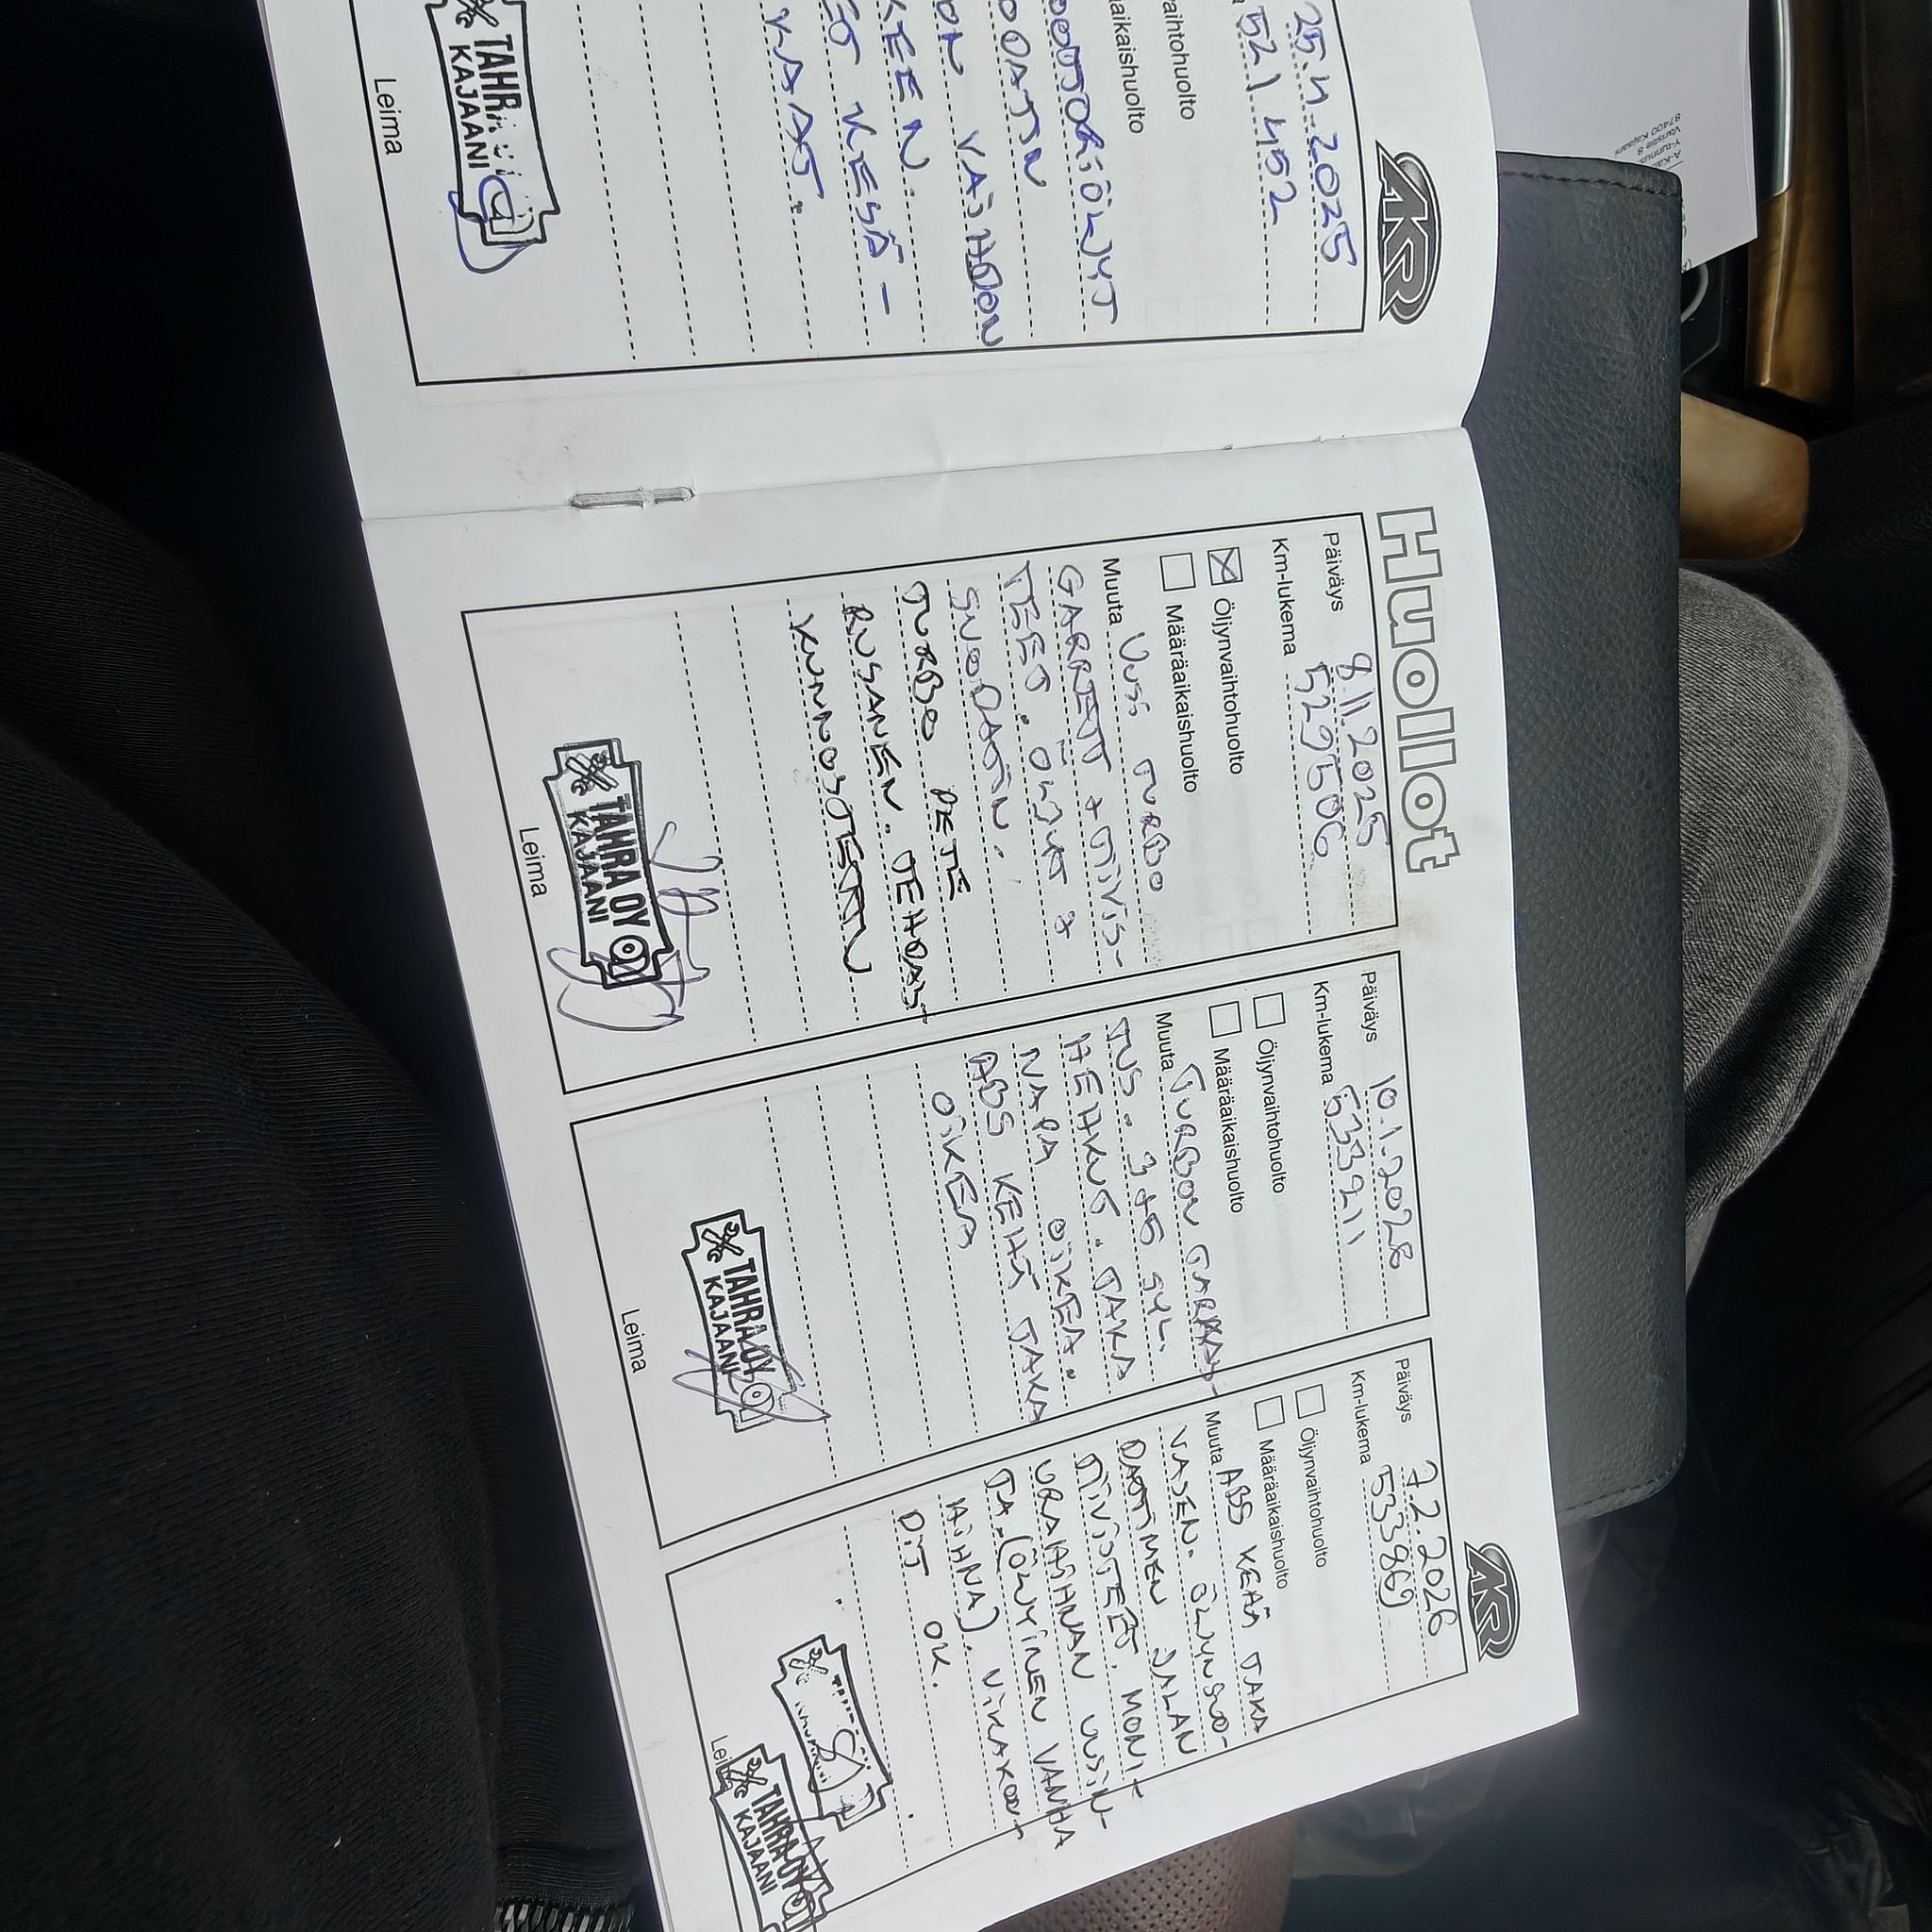 25.4.2025
521452
aihtohuolto
aikaishuolto
OOTTORIÖLJYT
ODATIN
ON VAIHDON
KEEN.
ET KESÄ-
KAAT.
TAHRA
KAJAANI
Leima
AKR
A-Ka
Y-tunnus
Varistie 8
87400 Kajaani
Huollot
Päiväys 8.11.2025
Km-lukema 529506
Öljynvaihtohuolto
Määräaikaishuolto
Muuta UUSI TURBO
GARRETT + TIIVIS-
TEET. ÖLJYT +
SUODATIN.
TURBO PETE
RUSANEN. TEHDAS-
KUNNOSTETTU
TAHRA OY
KAJAANI
Leima
Päiväys 10.1.2026
Km-lukema 533211
Öljynvaihtohuolto
Määräaikaishuolto
Muuta TURBON TARKAS-
TUS. 3+5 SYL.
HEHKUT. TAKA
NAPA OIKEA.
ABS KEHÄ TAKA
OIKEA
TAHRA OY
KAJAANI
Leima
AKR
Päiväys 7.2.2026
Km-lukema 533869
Öljynvaihtohuolto
Määräaikaishuolto
Muuta ABS KEHÄ TAKA
VASEN. ÖLJYNSUO-
DATTIMEN JALAN
TIIVISTEET. MONI-
URAHIHNAN UUSIN-
TA. (ÖLJYINEN VANHA
HIHNA). VIKAKOO-
DIT OK.
TAHRA OY
KAJAANI